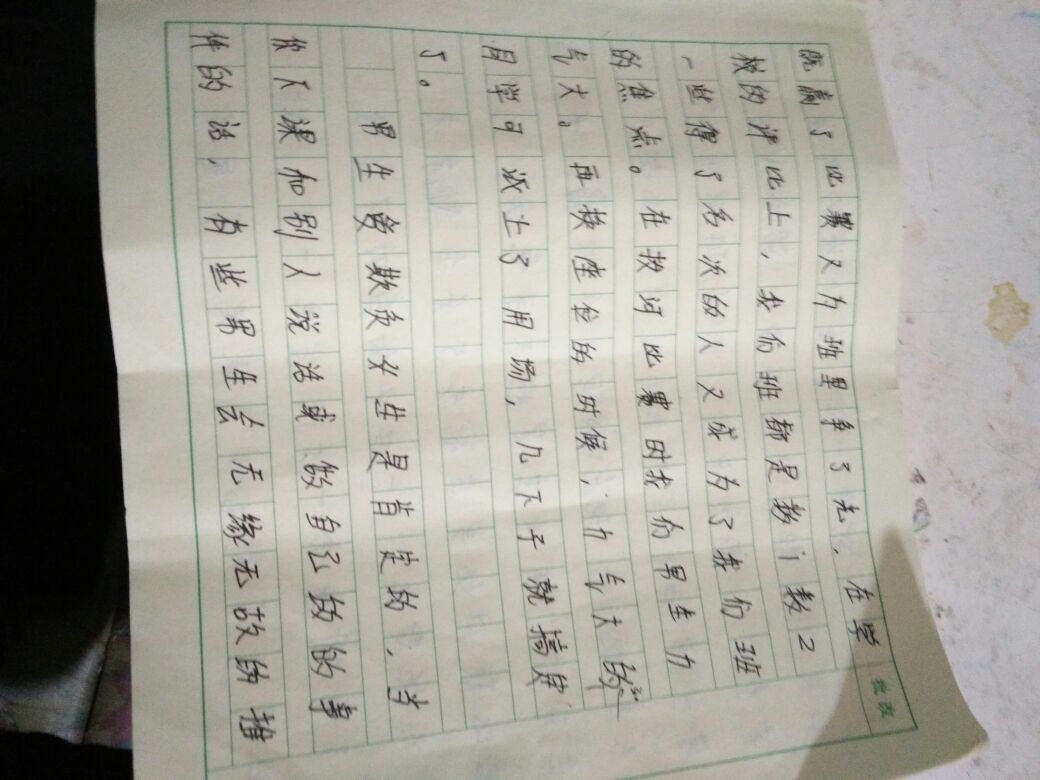 既赢了比赛又为班里争了光，在学
校的评比上，我们班都是数1数2
，些得了名次的人又成为了我们班
的焦点。在拔河比赛时我们男生力
气大。再换座位的时候，力气大的
同学可派上了用场，几下子就搞定
了。
男生爱欺负女生是肯定的，当
你下课和别人说话或做自己的的事
件的话，有些男生会无缘无故的推
批改